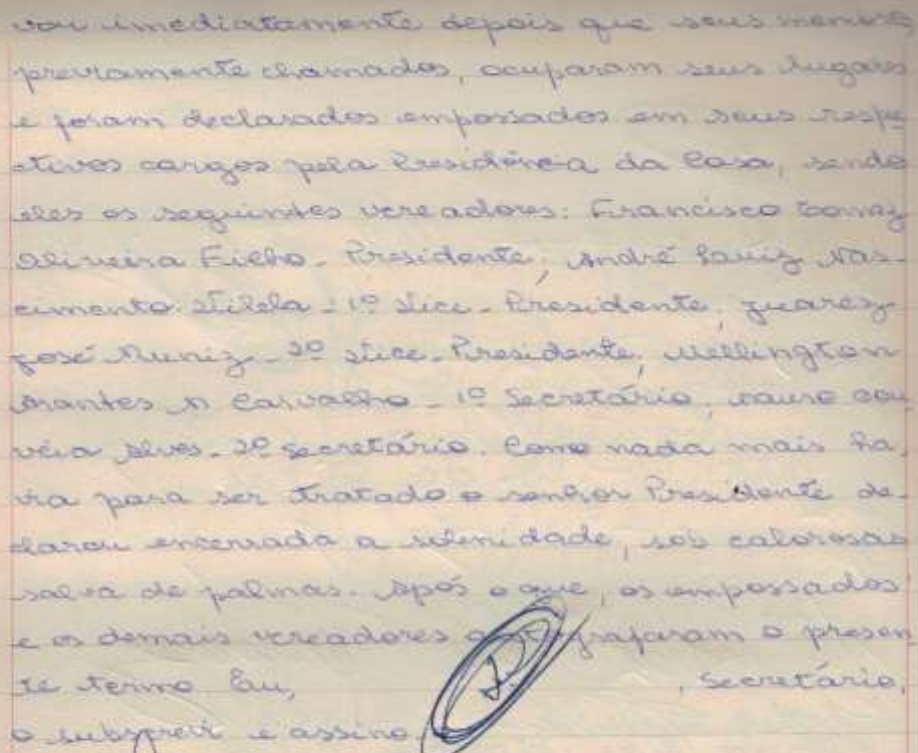 vou imediatamente depois que seus membros
previamente chamados, ocuparam seus lugares
e foram declarados empossados em seus respe
ctivos cargos pela Presidência da Casa, sendo
eles os seguintes vereadores: Francisco Tomaz
Oliveira Filho - Presidente, André Luiz Nas-
cimento Vilela - 1º Vice - Presidente, Juarez
José Muniz - 2º Vice - Presidente, Wellington
Arantes N Carvalho - 1º Secretário, Mauro Gou
vêia Alves - 2º Secretário. Como nada mais ha
via para ser tratado o senhor Presidente de
clarou encerrada a solenidade, sob calorosas
salva de palmas. Após o que, os empossados
e os demais vereadores grafaram o presen
te termo Eu, , Secretário,
o subscrevi e assino.